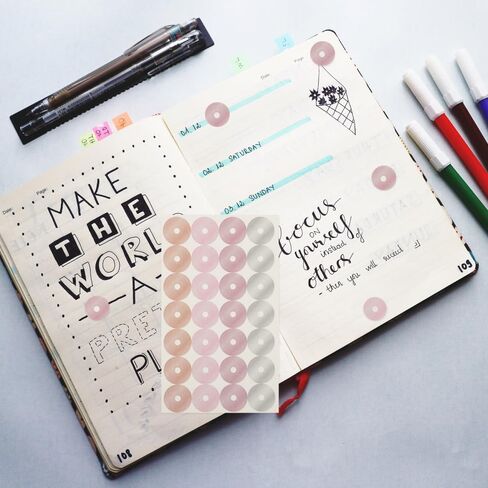 Date: Page:
MAKE
THE
WORL
A
PRE
PL
108
Date Page
01. 12
02. 12 SATURDAY
03. 12 SUNDAY
focus
ON
yourself
instead of
others
- then you will succeed
109